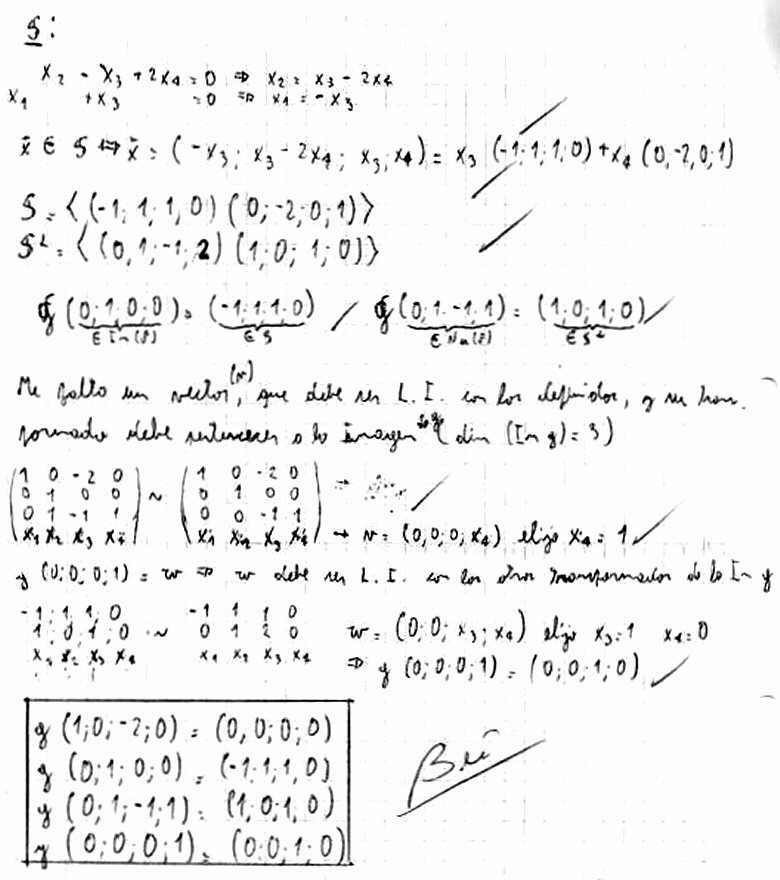 S:
x2 - x3 + 2x4 = 0 ⇒ x2 = x3 - 2x4
x1 + x3 = 0 ⇒ x1 = -x3
x̄ ∈ S ⇔ x̄ = (-x3; x3 - 2x4; x3; x4) = x3 (-1; 1; 1; 0) + x4 (0, -2, 0; 1)
S = ⟨(-1; 1; 1, 0) (0; -2; 0; 1)⟩
S⊥ = ⟨(0, 1; -1; 2) (1; 0; 1; 0)⟩
g (0; 1; 0; 0) = (-1; 1; 1; 0) g (0; 1; -1; 1) = (1; 0; 1; 0)
∈ Im(f) ∈ S ∈ Nu(f) ∈ S⊥
Me falta un vector (v), que debe ser L.I. con los definidos, y su trans.
formado debe pertenecer a la imagen de g (dim (Im g) = 3)
1 0 -2 0 ~ 1 0 -2 0 ⇒
0 1 0 0 0 1 0 0
0 1 -1 1 0 0 -1 1
x1 x2 x3 x4 x1 x2 x3 x4 → v = (0; 0; 0; x4) elijo x4 = 1
g (0; 0; 0; 1) = w ⇒ w debe ser L.I. con los otros transformados de la Im g
-1; 1; 1; 0 -1 1 1 0
1; 0; 1; 0 ~ 0 1 2 0 w = (0; 0; x3; x4) elijo x3 = 1 x4 = 0
x1 x2 x3 x4 x1 x2 x3 x4 ⇒ g (0; 0; 0; 1) = (0; 0; 1; 0)
g (1; 0; -2; 0) = (0, 0; 0; 0)
g (0; 1; 0; 0) = (-1; 1; 1, 0)
g (0; 1; -1; 1) = (1; 0; 1, 0)
g (0; 0, 0; 1) = (0; 0; 1; 0)